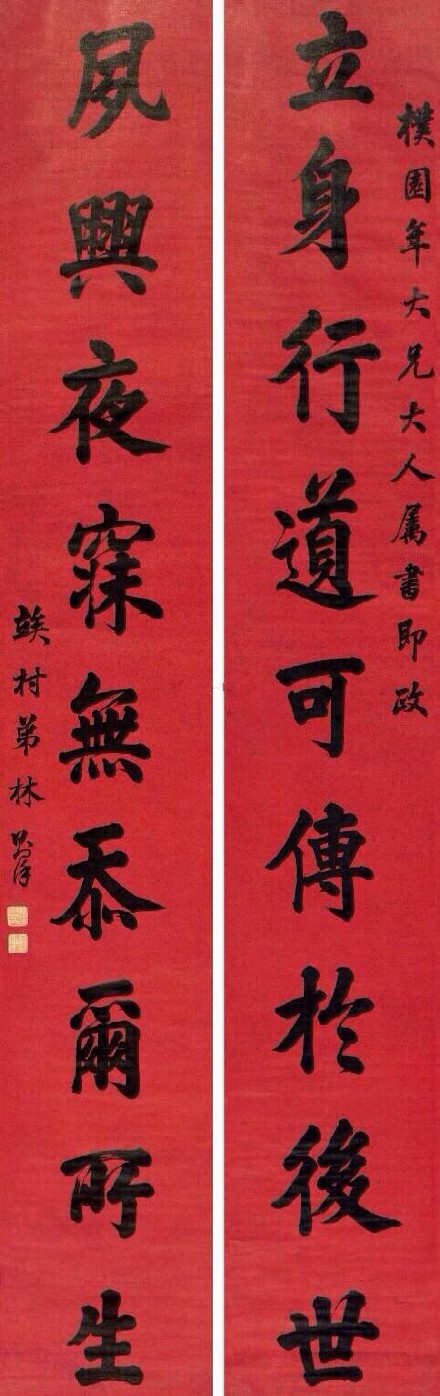 樸園年大兄大人属書即政
立身行道可傳於後世
夙興夜寐無忝爾所生
竢村弟林